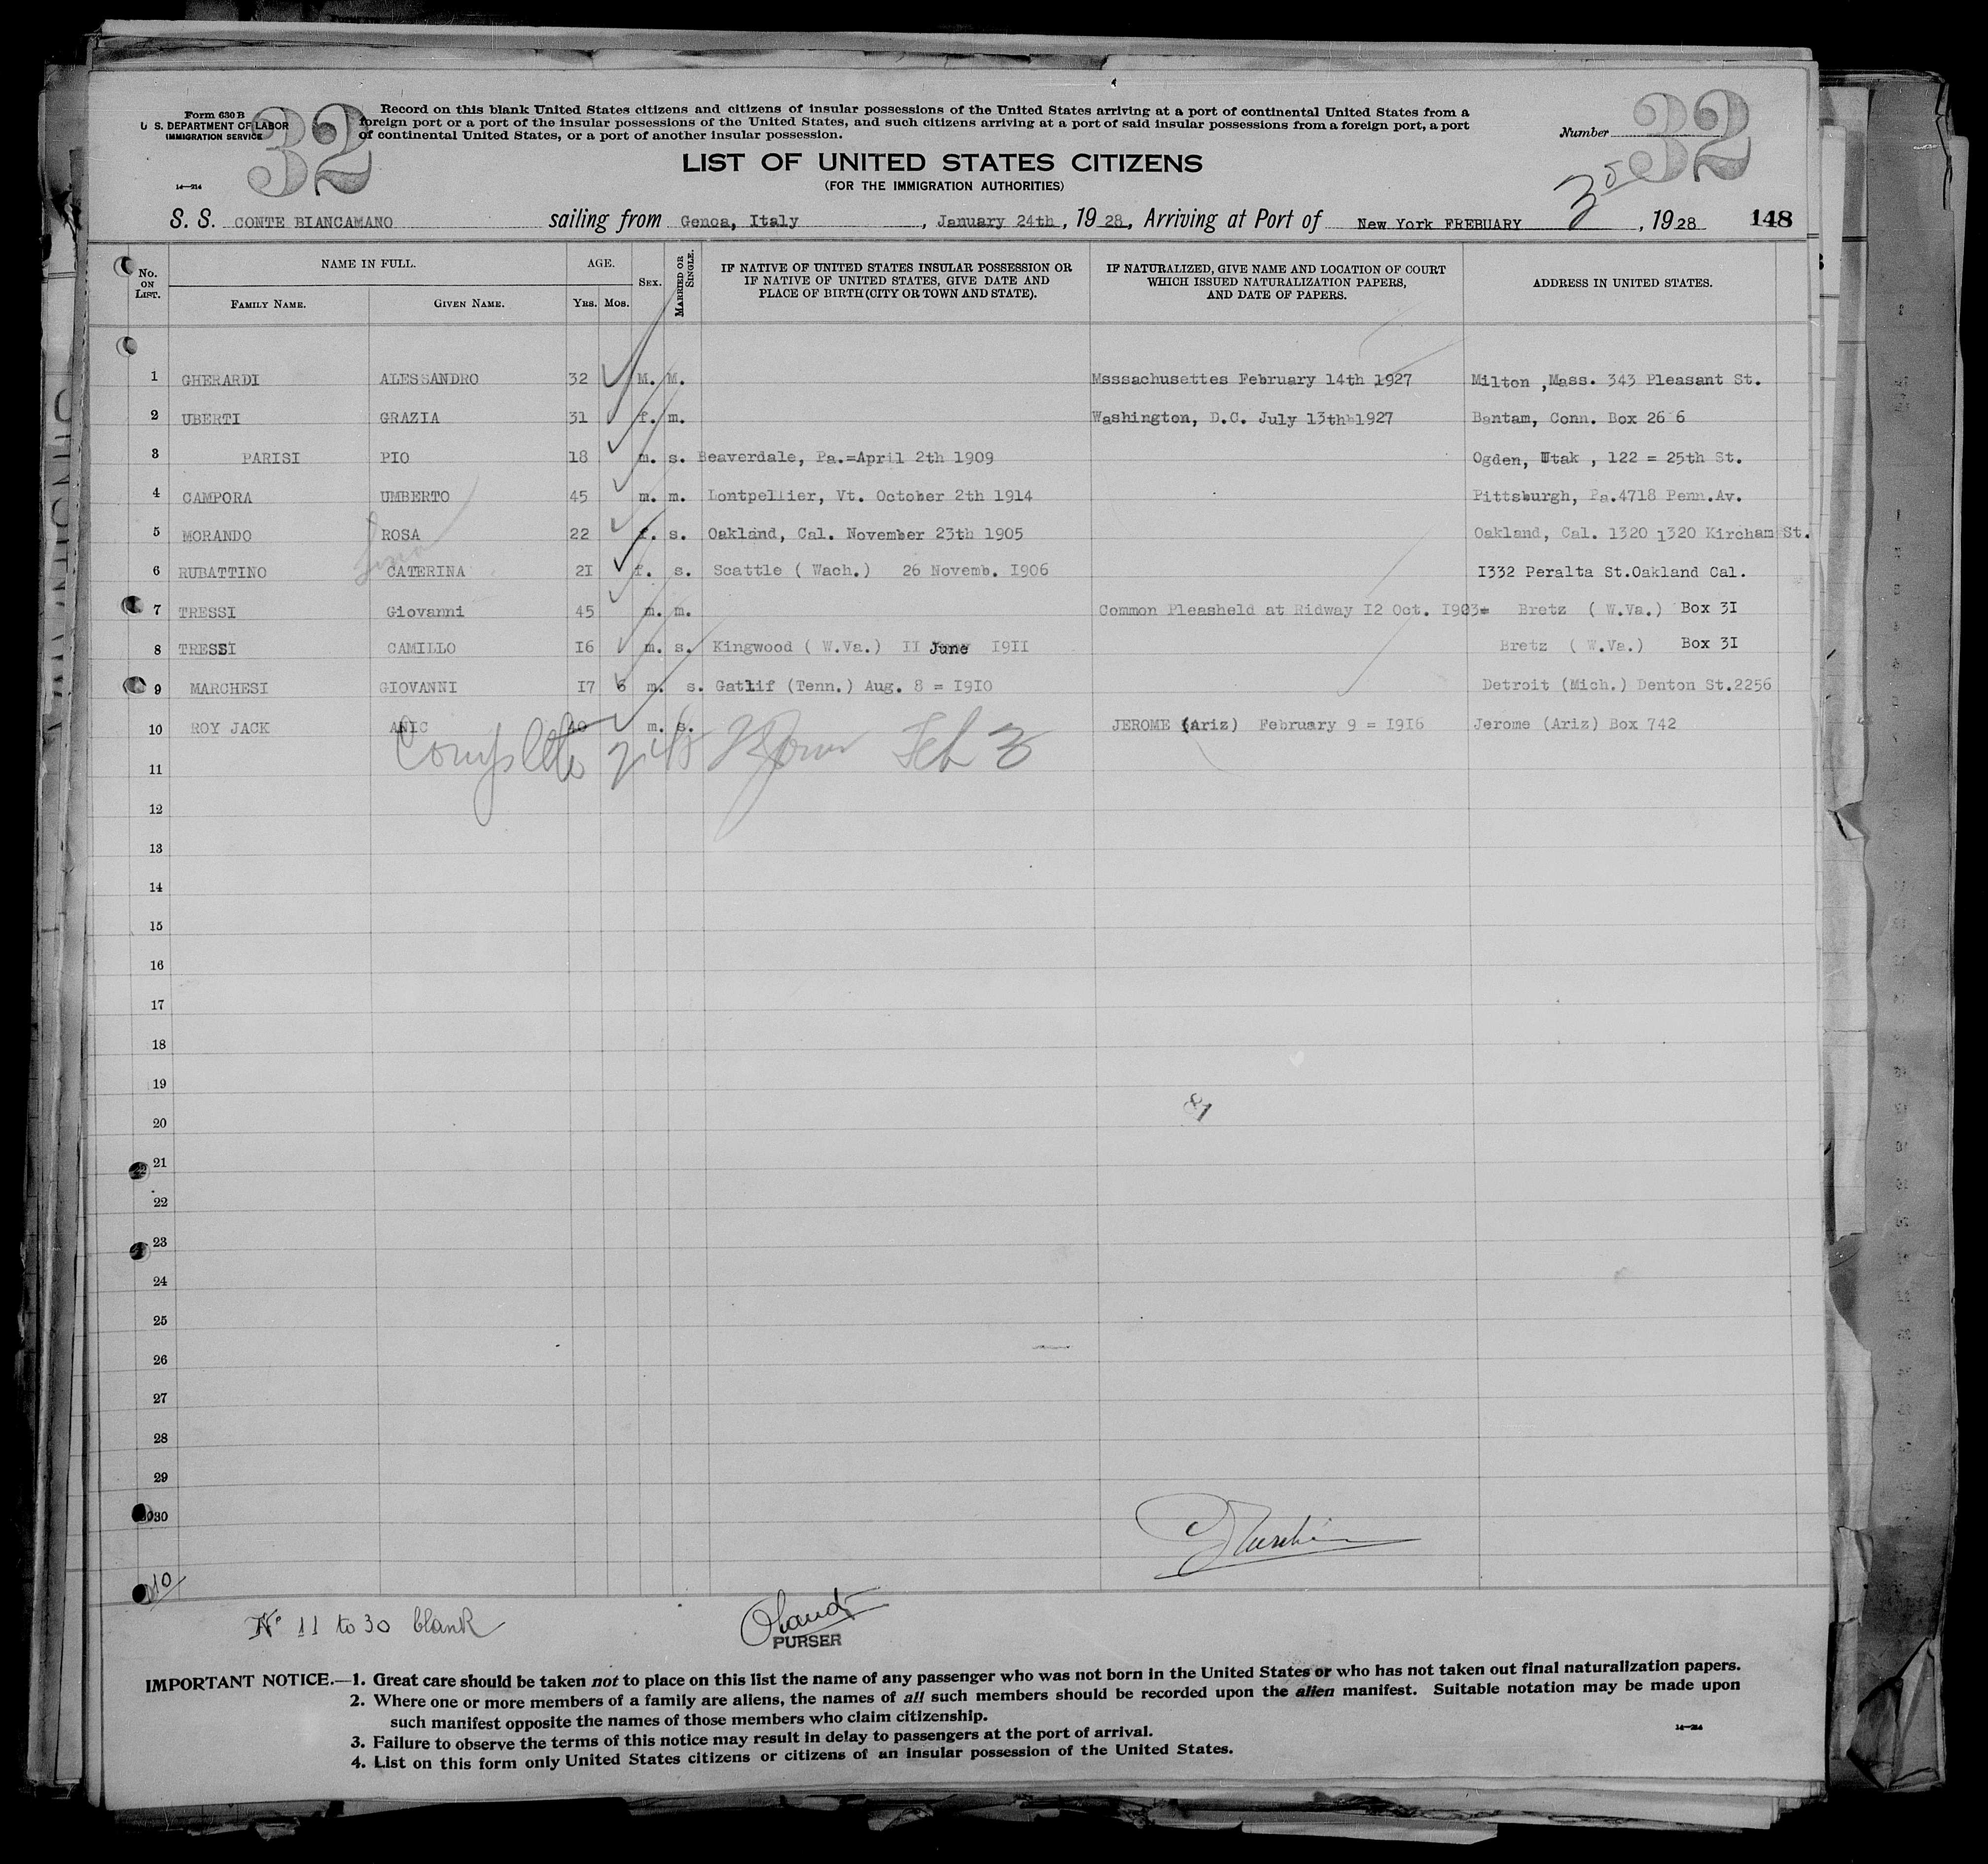 Form 630 B
U. S. DEPARTMENT OF LABOR
IMMIGRATION SERVICE
14—214
32
Record on this blank United States citizens and citizens of insular possessions of the United States arriving at a port of continental United States from a
foreign port or a port of the insular possessions of the United States, and such citizens arriving at a port of said insular possessions from a foreign port, a port
of continental United States, or a port of another insular possession.
Number
32
LIST OF UNITED STATES CITIZENS
(FOR THE IMMIGRATION AUTHORITIES)
S. S. CONTE BIANCAMANO sailing from Genoa, Italy , January 24th , 19 28, Arriving at Port of New York FREBUARY 3 , 19 28 148
No. ON LIST.
NAME IN FULL.
FAMILY NAME.
GIVEN NAME.
AGE.
YRS. MOS.
SEX.
MARRIED OR SINGLE.
IF NATIVE OF UNITED STATES INSULAR POSSESSION OR
IF NATIVE OF UNITED STATES, GIVE DATE AND
PLACE OF BIRTH (CITY OR TOWN AND STATE).
IF NATURALIZED, GIVE NAME AND LOCATION OF COURT
WHICH ISSUED NATURALIZATION PAPERS,
AND DATE OF PAPERS.
ADDRESS IN UNITED STATES.
1 GHERARDI ALESSANDRO 32 M. M. Msssachusettes February 14th 1927 Milton ,Mass. 343 Pleasant St.
2 UBERTI GRAZIA 31 f. m. Washington, D.C. July 13thh1927 Bantam, Conn. Box 26 6
3 PARISI PIO 18 m. s. Beaverdale, Pa.=April 2th 1909 Ogden, Utak , 122 = 25th St.
4 CAMPORA UMBERTO 45 m. m. Lontpellier, Vt. October 2th 1914 Pittsburgh, Pa.4718 Penn.Av.
5 MORANDO ROSA 22 f. s. Oakland, Cal. November 23th 1905 Oakland, Cal. 1320 1320 Kircham St.
6 RUBATTINO CATERINA 2I f. s. Scattle ( Wach.) 26 Novemb. I906 I332 Peralta St.Oakland Cal.
7 TRESSI Giovanni 45 m. m. Common Pleasheld at Ridway I2 Oct. I903= Bretz ( W.Va.) Box 3I
8 TRESSI CAMILLO I6 m. s. Kingwood ( W.Va.) II June I9II Bretz ( W.Va.) Box 3I
9 MARCHESI GIOVANNI I7 6 m. s. Gatlif (Tenn.) Aug. 8 = I9I0 Detroit (Mich.) Denton St.2256
10 ROY JACK ANIC m. s. JEROME (Ariz) February 9 = I9I6 Jerome (Ariz) Box 742
Complete Feb 3
11
12
13
14
15
16
17
18
19
20
21
22
23
24
25
26
27
28
29
30
81
10
No 11 to 30 blank
PURSER
IMPORTANT NOTICE.—1. Great care should be taken not to place on this list the name of any passenger who was not born in the United States or who has not taken out final naturalization papers.
2. Where one or more members of a family are aliens, the names of all such members should be recorded upon the alien manifest. Suitable notation may be made upon
such manifest opposite the names of those members who claim citizenship.
3. Failure to observe the terms of this notice may result in delay to passengers at the port of arrival.
4. List on this form only United States citizens or citizens of an insular possession of the United States.
14—214